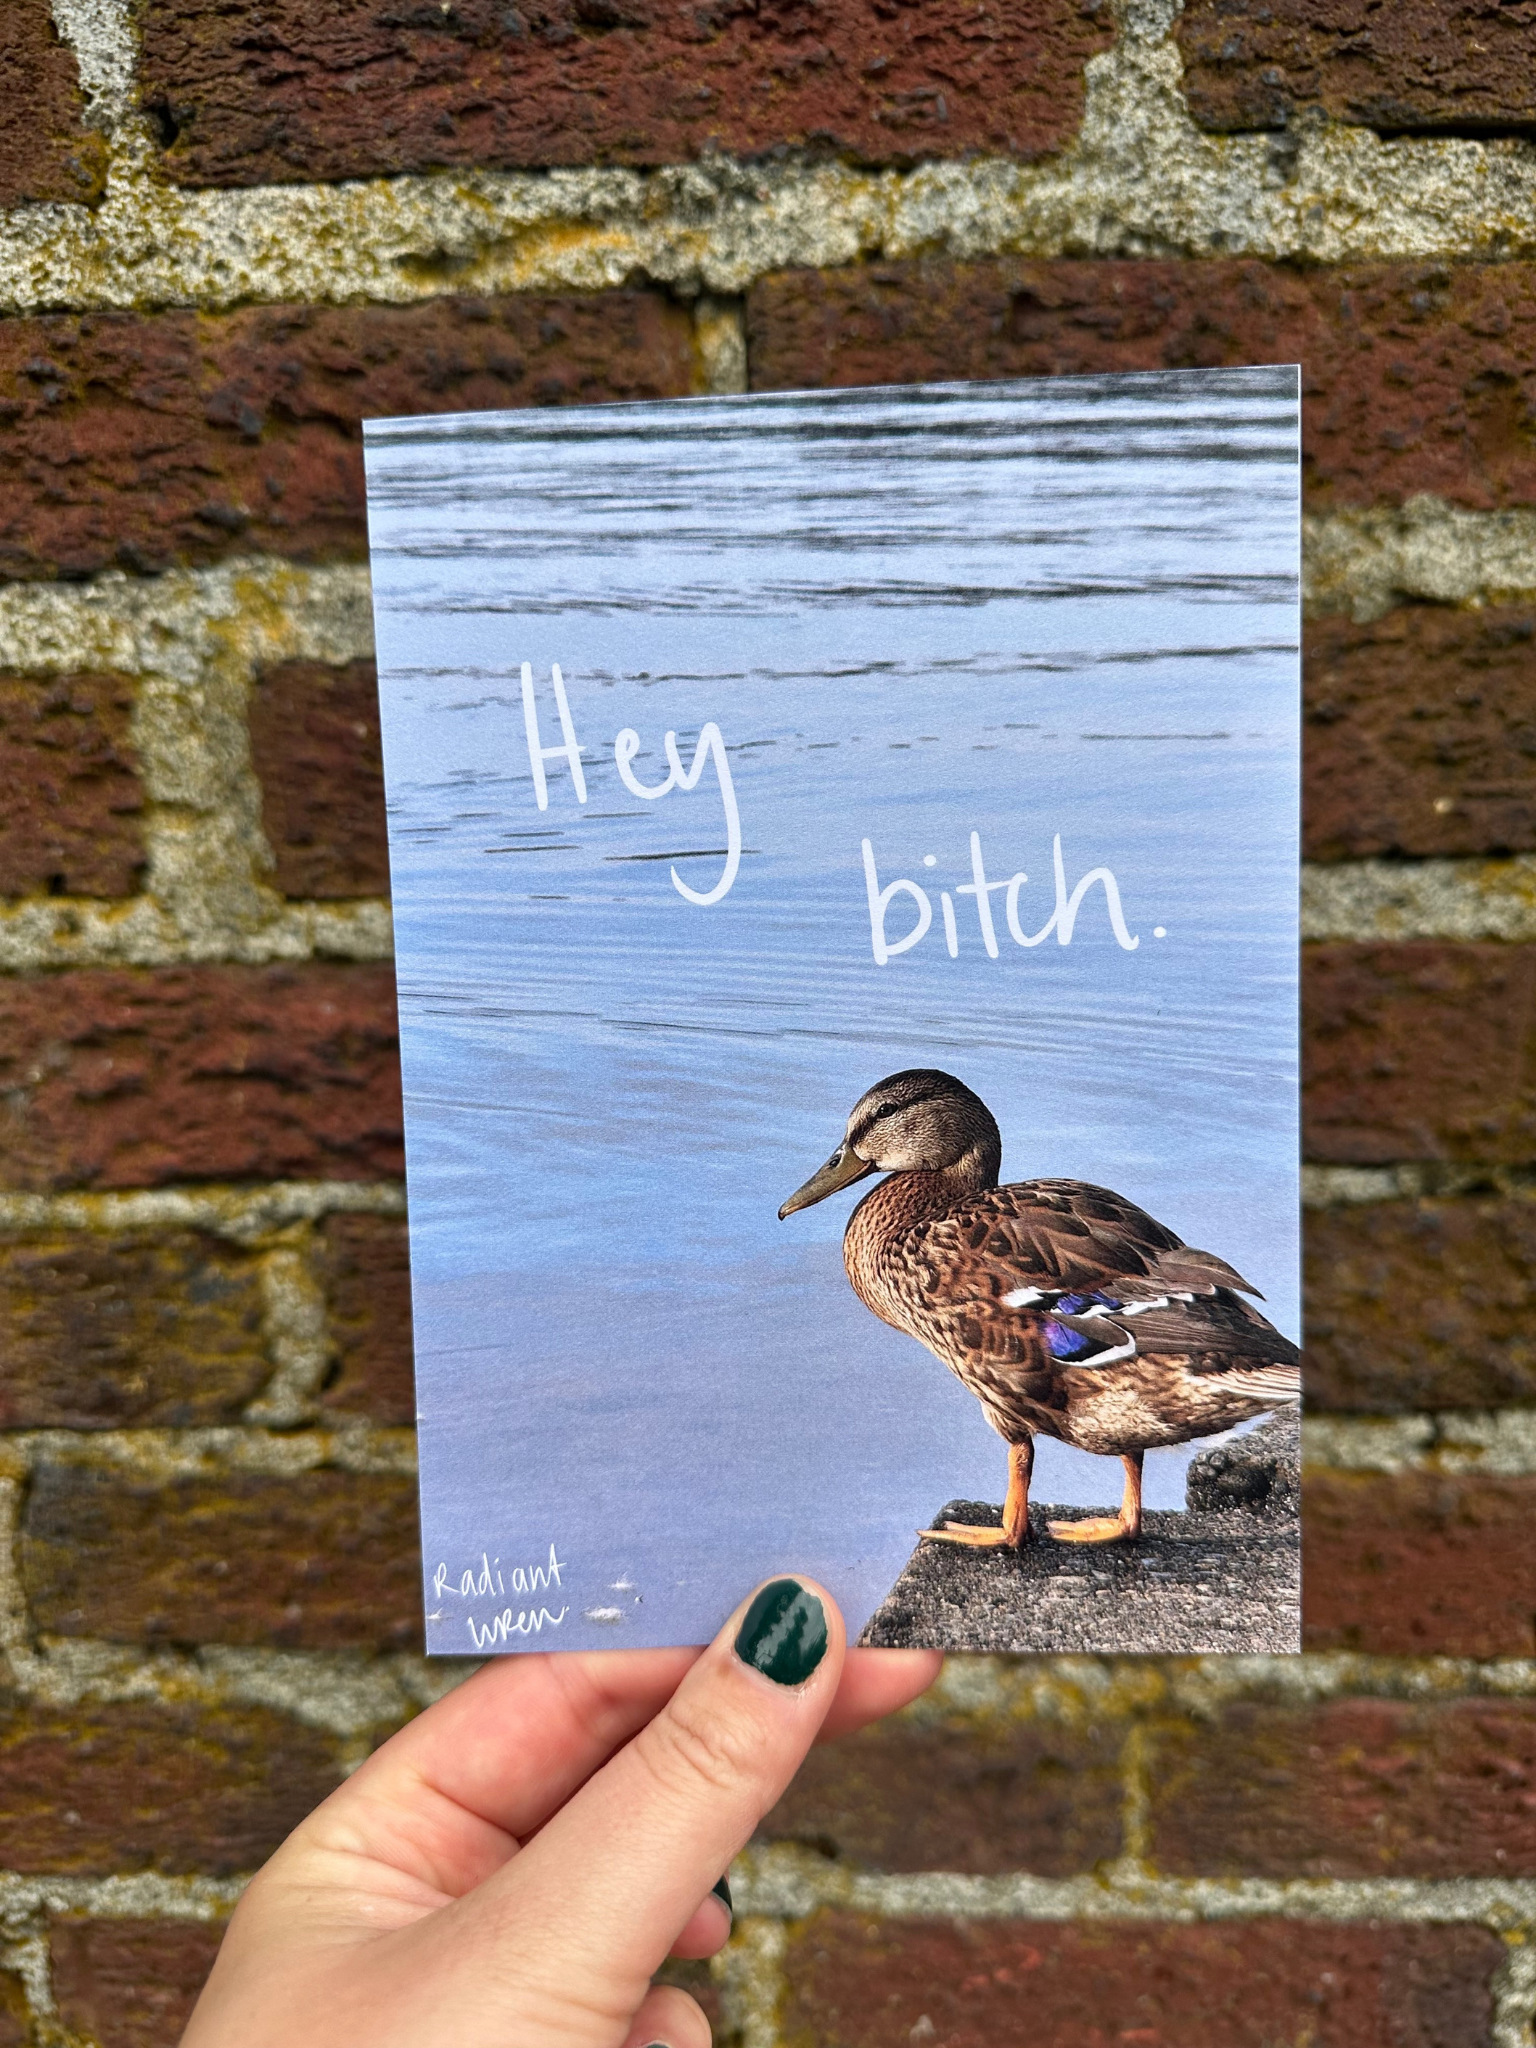 Hey
bitch.
Radiant
Wren.